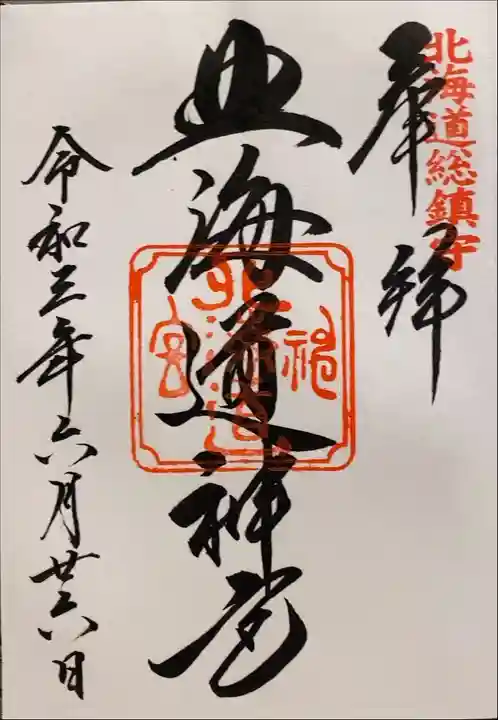 北海道総鎮守
奉拝
北海道神宮
令和三年六月廿六日